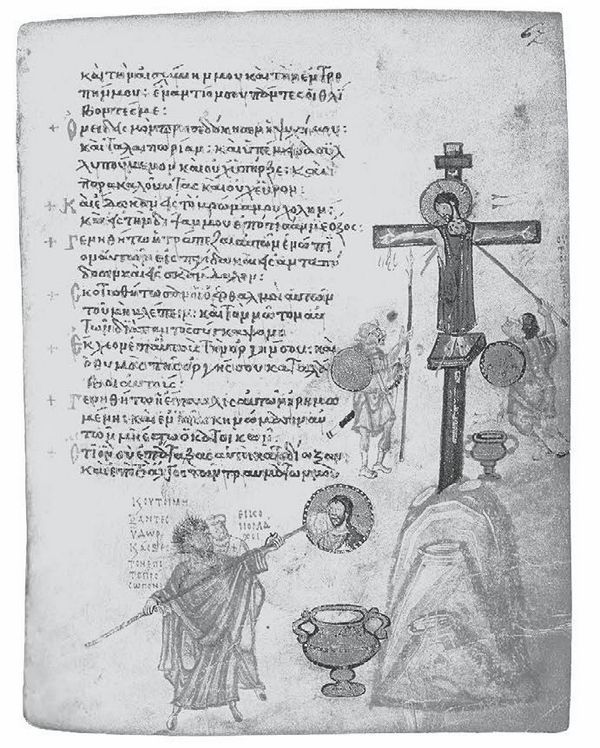 67
καὶ τὴν αἰσχύνην μου καὶ τὴν ἐντρο
πήν μου· ἐναντίον σου πάντες οἱ θλί
βοντές με·
Ὀνειδισμὸν προσεδόκησεν ἡ ψυχή μου·
καὶ ταλαιπωρίαν· καὶ ὑπέμεινα συλ
λυπούμενον καὶ οὐχ ὑπῆρξε· καὶ
παρακαλοῦντας καὶ οὐχ εὗρον·
Καὶ ἔδωκαν εἰς τὸ βρῶμά μου χολήν·
καὶ εἰς τὴν δίψαν μου ἐπότισάν με ὄξος·
Γενηθήτω ἡ τράπεζα αὐτῶν ἐνώπι
ον αὐτῶν εἰς παγίδα καὶ εἰς ἀνταπό
δοσιν καὶ εἰς σκάνδαλον·
Σκοτισθήτωσαν οἱ ὀφθαλμοὶ αὐτῶν
τοῦ μὴ βλέπειν· καὶ τὸν νῶτον αὐ
τῶν διὰ παντὸς σύγκαμψον·
Ἔκχεον ἐπ' αὐτοὺς τὴν ὀργήν σου· καὶ
ὁ θυμὸς τῆς ὀργῆς σου καταλά
βοι αὐτούς·
Γενηθήτω ἡ ἔπαυλις αὐτῶν ἠρημω
μένη· καὶ ἐν τοῖς σκηνώμασιν αὐ
τῶν μὴ ἔστω ὁ κατοικῶν·
Ὅτι ὃν σὺ ἐπάταξας αὐτοὶ κατεδίωξαν
καὶ ἐπὶ τὸ ἄλγος τῶν τραυμάτων μου
Κ ΟΥΤΟΙ ΜΙ
ΞΑΝΤΕΣ
ΥΔΩΡ
ΕΙΚΟ
ΝΟΜΑ
ΧΟΙ